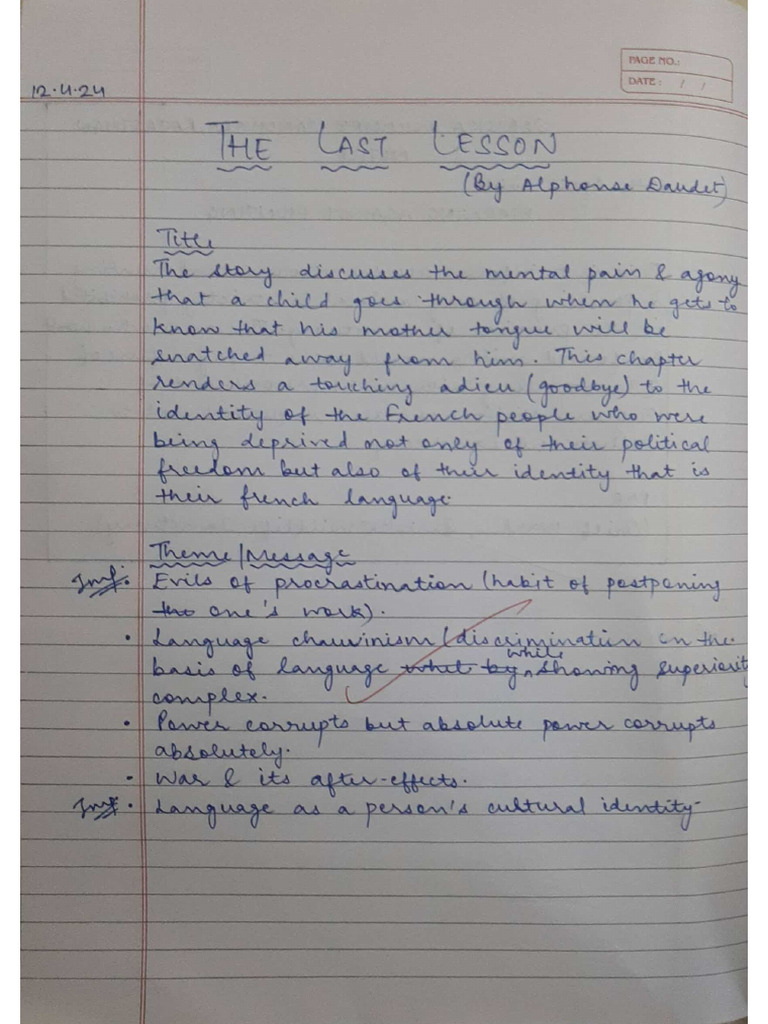 PAGE NO.:
DATE: / /
12.4.24
THE LAST LESSON
(By Alphonse Daudet)
Title
The story discusses the mental pain & agony
that a child goes through when he gets to
know that his mother tongue will be
snatched away from him. This chapter
renders a touching adieu (goodbye) to the
identity of the French people who were
being deprived not only of their political
freedom but also of their identity that is
their french language.
Theme/Message
Imp. Evils of procrastination (habit of postponing
the one's work).
• Language chauvinism (discrimination on the
basis of language what by while showing superiority
complex.
• Power corrupts but absolute power corrupts
absolutely.
• War & its after-effects.
Imp • Language as a person's cultural identity.